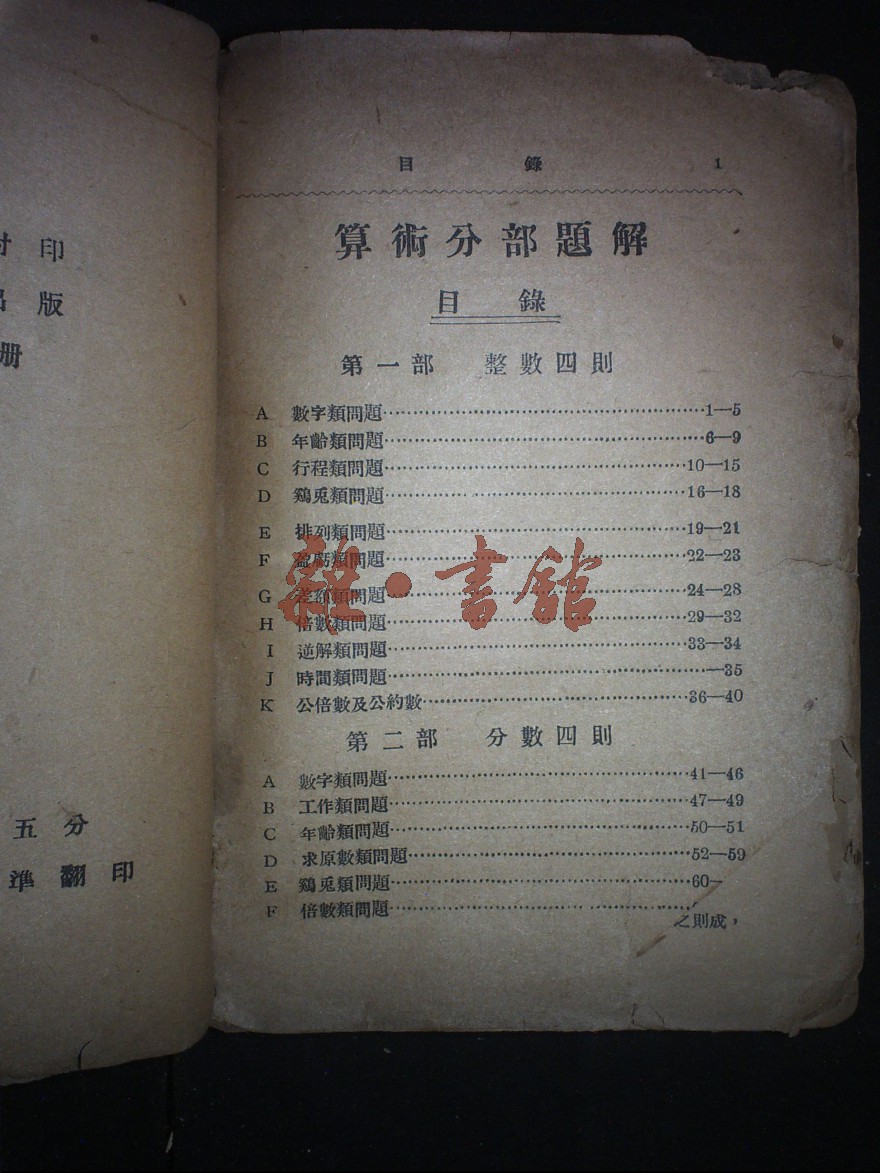 印
版
册
五分
準翻印
目錄 1
算術分部題解
目錄
第一部 整數四則
A 數字類問題……1—5
B 年齡類問題……6—9
C 行程類問題……10—15
D 鷄兎類問題……16—18
E 排列類問題……19—21
F 盈虧類問題……22—23
G 差額類問題……24—28
H 倍數類問題……29—32
I 逆解類問題……33—34
J 時間類問題……—35
K 公倍數及公約數……36—40
第二部 分數四則
A 數字類問題……41—46
B 工作類問題……47—49
C 年齡類問題……50—51
D 求原數類問題……52—59
E 鷄兎類問題……60—
F 倍數類問題……
之則成，
雜·書館